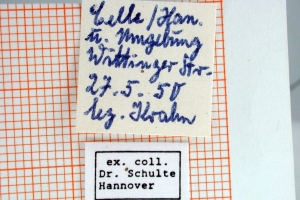 Celle / Han.
u. Umgebung
Wittinger Str.
27.5.50
leg. Krahn
ex. coll.
Dr. Schulte
Hannover